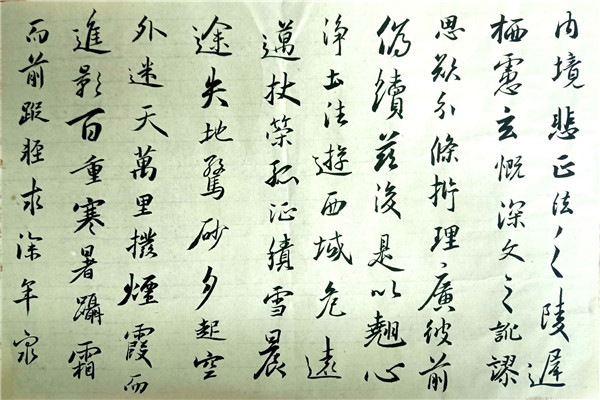 内境悲正法之陵遲
栖慮玄慨深文之訛謬
思欲分條析理廣彼前
偽續茲後是以翹心
淨土法遊西域危遠
邁杖策孤征積雪晨
途失地驚砂夕起空
外迷天萬里撥煙霞而
進影百重寒暑躡霜
而前蹤輕求深年窮